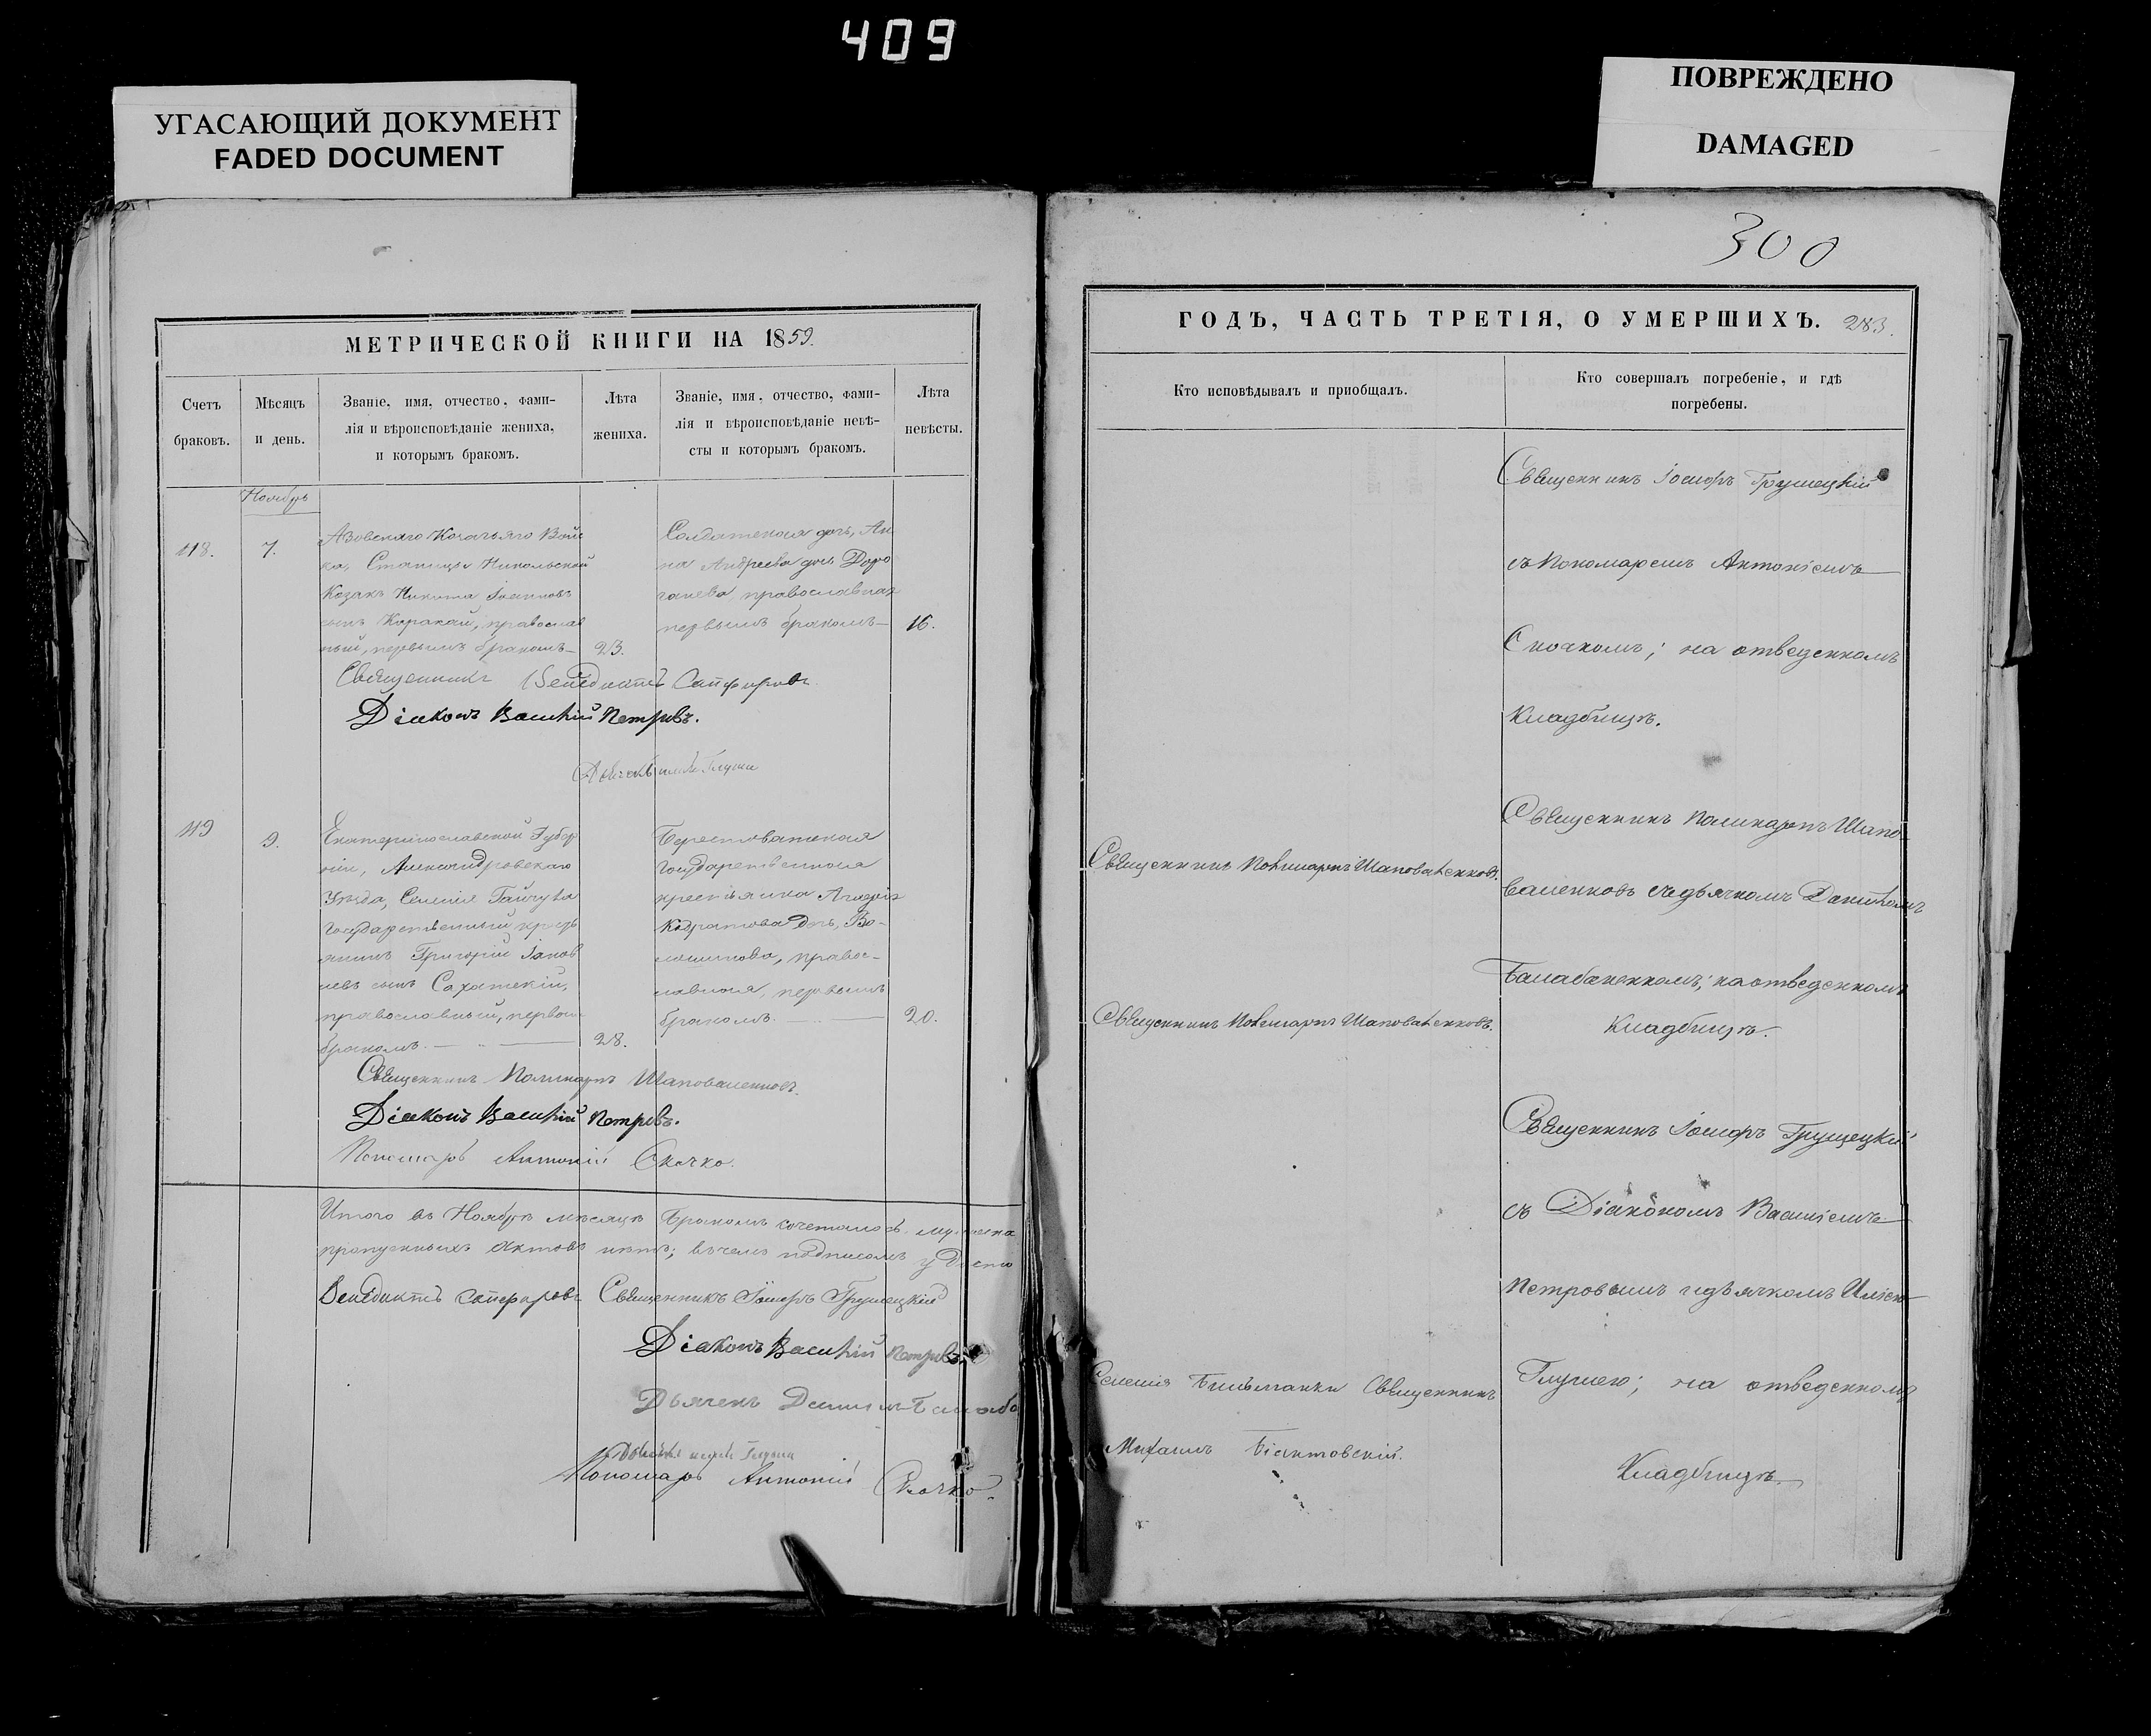 409
УГАСАЮЩИЙ ДОКУМЕНТ
FADED DOCUMENT
ПОВРЕЖДЕНО
DAMAGED
МЕТРИЧЕСКОЙ КНИГИ НА 1859.
Счетъ браковъ.
Мѣсяцъ и день.
Званіе, имя, отчество, фами-
лія и вѣроисповѣданіе жениха,
и которымъ бракомъ.
Лѣта жениха.
Званіе, имя, отчество, фами-
лія и вѣроисповѣданіе невѣ-
сты и которымъ бракомъ.
Лѣта невѣсты.
Ноябрь
118.
7.
Азовскаго Козачьяго Вой
ка, Станицы Никольской
Козакъ Никита Іоанновъ
сынъ Каракай, православ
ный, первымъ бракомъ
23.
Солдатская дочь, Ан
на Андреева дочь Доро
ганева православная
первымъ бракомъ
16.
Священникъ Венедиктъ Сапфировъ
Діаконъ Василій Петровъ.
119
9.
Екатеринославской Губер
ніи, Александровскаго
Уѣзда, Селенія Гайчула
Государственный крестья
нинъ Григорій
сынъ
православный, первым
бракомъ.
28.
Берестоватская
Государственная
крестьянка
дочь, Во-
лошинова, правос-
лавная, первымъ
бракомъ.
20.
Священникъ Поликарпъ Шаповаленковъ.
Діаконъ Василій Петровъ.
Пономарь Антоній Скочко.
Итого въ Ноябрѣ мѣсяцѣ бракомъ сочеталось
пропущенныхъ актовъ нѣтъ; въ чемъ подписомъ удосто
Венедиктъ Сапфировъ Священникъ Іосифъ Грушецкій
Діаконъ Василій Петровъ.
Дьячекъ Даниилъ Балаба
Пономарь Антоній Скочко.
300
ГОДЪ, ЧАСТЬ ТРЕТІЯ, О УМЕРШИХЪ. 283.
Кто исповѣдывалъ и приобщалъ.
Кто совершалъ погребеніе, и гдѣ
погребены.
Священникъ Іосифъ Грушецкій
съ Пономаремъ Антоніемъ
Скочкомъ; на отведенномъ
Кладбищѣ.
Священникъ Поликарпъ Шаповаленковъ.
Священникъ Поликарпъ Шапо
валенковъ съ дьячкомъ Даниломъ
Балабаненкомъ; на отведенномъ
Священникъ Поликарпъ Шаповаленковъ.
Кладбищѣ.
Священникъ Іосифъ Грушецкій
съ Діакономъ Василіемъ
Петровымъ и дьячкомъ Иліею
Селенія Бильманки Священникъ
Глушею; на отведенномъ
Михаилъ Біантовскій.
Кладбищѣ.